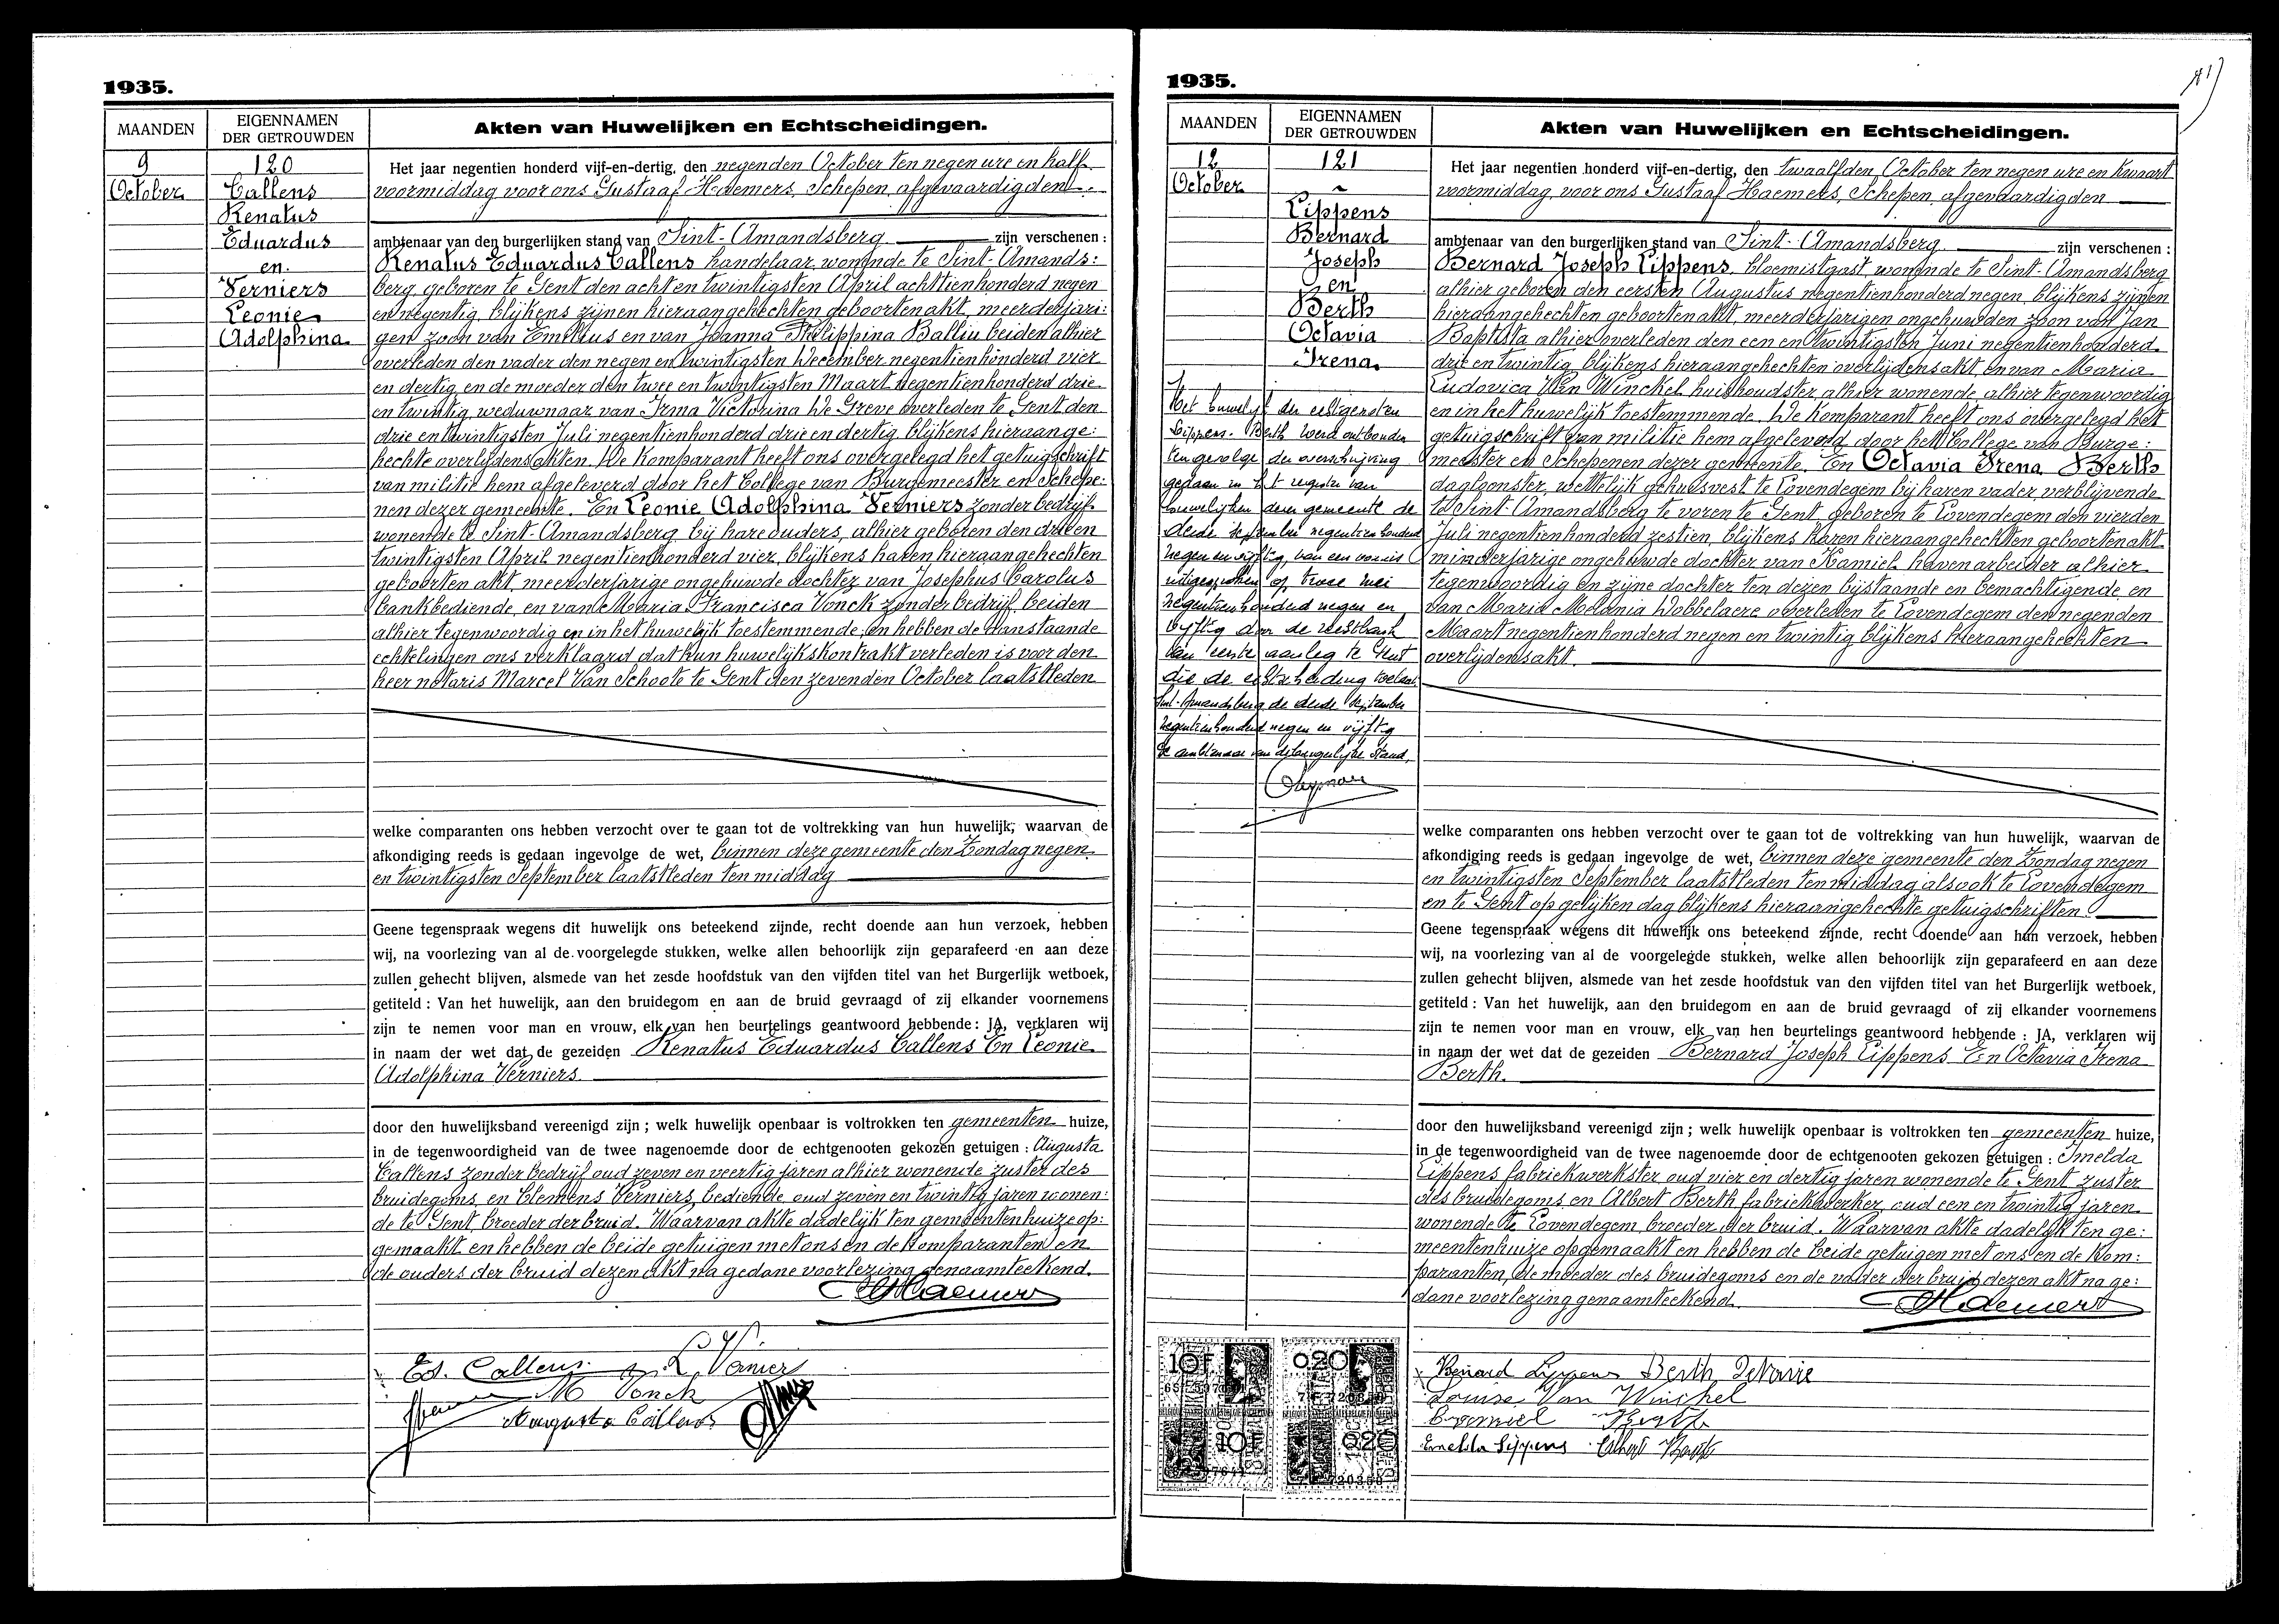 1935.
MAANDEN
EIGENNAMEN
DER GETROUWDEN
Akten van Huwelijken en Echtscheidingen.
9
October
120
Callens
Renatus
Eduardus
en
Verniers
Leonie
Adolphina
Het jaar negentien honderd vijf-en-dertig, den negenden October ten negen ure en half
voormiddag voor ons Gustaaf Haemers, Schepen, afgevaardigden
ambtenaar van den burgerlijken stand van Sint-Amandsberg zijn verschenen :
Renatus Eduardus Callens handelaar, wonende te Sint-Amands:
berg, geboren te Gent den acht en twintigsten April achttienhonderd negen
en negentig, blijkens zijnen hieraangehechten geboortenakt, meerderjari:
gen zoon van Emilius en van Joanna Philippina Balliu beiden alhier
overleden den vader den negen en twintigsten December negentienhonderd vier
en dertig en de moeder den twee en twintigsten Maart negentienhonderd drie
en twintig weduwnaar van Irma Victorina De Greve overleden te Gent den
drie en twintigsten Juli negentienhonderd drie en dertig blijkens hieraange:
hechte overlijdensakten. De Komparant heeft ons overgelegd het getuigschrift
van militie hem afgeleverd door het College van Burgemeester en Schepe:
nen dezer gemeente. En Leonie Adolphina Verniers zonder bedrijf
wonende te Sint-Amandsberg bij hare ouders, alhier geboren den drie en
twintigsten April negentienhonderd vier, blijkens haren hieraangehechten
geboorten akt, meerderjarige ongehuwde dochter van Josephus Carolus
bankbediende, en van Maria Francisca Vonck zonder bedrijf, beiden
alhier tegenwoordig en in het huwelijk toestemmende, en hebben de aanstaande
echtelingen ons verklaard dat hun huwelijkskontrakt verleden is voor den
heer notaris Marcel Van Schoote te Gent den zevenden October laatstleden
welke comparanten ons hebben verzocht over te gaan tot de voltrekking van hun huwelijk, waarvan de
afkondiging reeds is gedaan ingevolge de wet, binnen deze gemeente den Zondag negen
en twintigsten September laatstleden ten middag
Geene tegenspraak wegens dit huwelijk ons beteekend zijnde, recht doende aan hun verzoek, hebben
wij, na voorlezing van al de voorgelegde stukken, welke allen behoorlijk zijn geparafeerd en aan deze
zullen gehecht blijven, alsmede van het zesde hoofdstuk van den vijfden titel van het Burgerlijk wetboek,
getiteld : Van het huwelijk, aan den bruidegom en aan de bruid gevraagd of zij elkander voornemens
zijn te nemen voor man en vrouw, elk van hen beurtelings geantwoord hebbende : JA, verklaren wij
in naam der wet dat de gezeiden Renatus Eduardus Callens En Leonie
Adolphina Verniers
door den huwelijksband vereenigd zijn ; welk huwelijk openbaar is voltrokken ten gemeenten huize,
in de tegenwoordigheid van de twee nagenoemde door de echtgenooten gekozen getuigen : Augusta
Callens zonder bedrijf oud zeven en veertig jaren alhier wonende zuster des
bruidegoms, en Clemens Verniers, bediende, oud zeven en twintig jaren wonen:
de te Gent, broeder der bruid. Waarvan akte dadelijk ten gemeentenhuize op:
gemaakt en hebben de beide getuigen met ons en de Komparanten, en
de ouders der bruid dezen akt na gedane voorlezing genaamteekend.
Haemers
Ed. Callens L. Verniers
M Vonck
Augusta Callens
1935.
MAANDEN
EIGENNAMEN
DER GETROUWDEN
Akten van Huwelijken en Echtscheidingen.
12
October
121
Lippens
Bernard
Joseph
en
Berth
Octavia
Irena
Het huwelijk der echtgenoten
Lippens-Berth werd ontbonden
ten gevolge der overschrijving
gedaan in het register van
huwelijken dezer gemeente de
derde september negentienhonderd
negen en vijftig, van een vonnis
uitgesproken op twee mei
negentienhonderd negen en
vijftig door de rechtbank
van eerste aanleg te Gent
die de echtscheiding toelaat.
Sint-Amandsberg de derde september
negentienhonderd negen en vijftig
De ambtenaar van de burgerlijke stand,
Het jaar negentien honderd vijf-en-dertig, den twaalfden October ten negen ure en kwaart
voormiddag, voor ons Gustaaf Haemers, Schepen, afgevaardigden
ambtenaar van den burgerlijken stand van Sint-Amandsberg zijn verschenen :
Bernard Joseph Lippens, bloemistgast, wonende te Sint-Amandsberg
alhier geboren den eersten Augustus negentienhonderd negen, blijkens zijnen
hieraangehechten geboortenakt, meerderjarigen ongehuwden zoon van Jan
Baptista alhier overleden den een en twintigsten Juni negentienhonderd
drie en twintig blijkens hieraangehechten overlijdensakt en van Maria
Ludovica Van Winckel huishoudster, alhier wonende, alhier tegenwoordig
en in het huwelijk toestemmende. De Komparant heeft ons overgelegd het
getuigschrift van militie hem afgeleverd door het College van Burge:
meester en Schepenen dezer gemeente. En Octavia Irena Berth
dagloonster, wettelijk gehuisvest te Lovendegem bij haren vader, verblijvende
te Sint-Amandsberg te voren te Gent geboren te Lovendegem den vierden
Juli negentienhonderd zestien, blijkens haren hieraangehechten geboortenakt
minderjarige ongehuwde dochter van Kamiel, havenarbeider alhier
tegenwoordig en zijne dochter ten dezen bijstaande en bemachtigende en
van Maria Melania Dobbelaere overleden te Lovendegem den negenden
Maart negentienhonderd negen en twintig blijkens hieraangehechten
overlijdensakt.
welke comparanten ons hebben verzocht over te gaan tot de voltrekking van hun huwelijk, waarvan de
afkondiging reeds is gedaan ingevolge de wet, binnen deze gemeente den Zondag negen
en twintigsten September laatstleden ten middag alsook te Lovendegem
en te Gent op gelijken dag blijkens hieraangehechte getuigschriften.
Geene tegenspraak wegens dit huwelijk ons beteekend zijnde, recht doende aan hun verzoek, hebben
wij, na voorlezing van al de voorgelegde stukken, welke allen behoorlijk zijn geparafeerd en aan deze
zullen gehecht blijven, alsmede van het zesde hoofdstuk van den vijfden titel van het Burgerlijk wetboek,
getiteld : Van het huwelijk, aan den bruidegom en aan de bruid gevraagd of zij elkander voornemens
zijn te nemen voor man en vrouw, elk van hen beurtelings geantwoord hebbende : JA, verklaren wij
in naam der wet dat de gezeiden Bernard Joseph Lippens En Octavia Irena
Berth.
door den huwelijksband vereenigd zijn ; welk huwelijk openbaar is voltrokken ten gemeenten huize,
in de tegenwoordigheid van de twee nagenoemde door de echtgenooten gekozen getuigen : Imelda
Lippens fabriekwerkster oud vier en dertig jaren wonende te Gent zuster
des bruidegoms, en Albert Berth fabriekwerker, oud een en twintig jaren
wonende te Lovendegem, broeder der bruid. Waarvan akte dadelijk ten ge:
meentenhuize opgemaakt en hebben de beide getuigen met ons en de Kom:
paranten, de moeder des bruidegoms en de vader der bruid dezen akt na ge:
dane voorlezing genaamteekend.
Haemers
10F
020
10F
020
Bernard Lippens Berth Octavie
Louise Van Winckel
Berth
Imelda Lippens Albert Berth